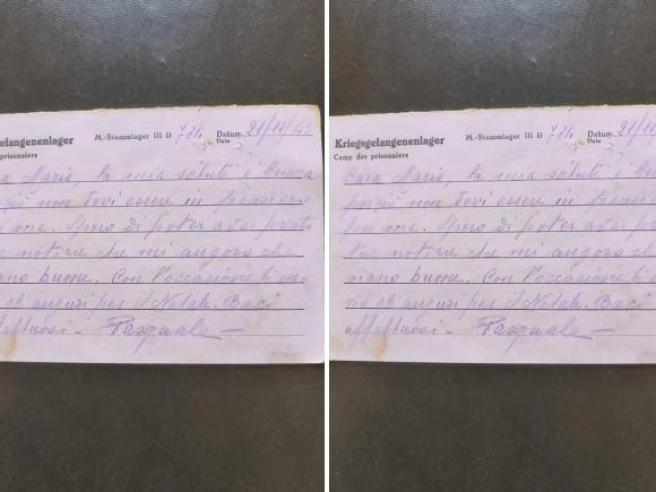 efangenenlager M.-Stammlager III D Datum 21/11/43
prisonniers Date
ra Maria, la mia salute è buona
perciò non devi essere in pensiero
per me. Spero di poter aver presto
tue notizie che mi auguro che
siano buone. Con l'occasione ti in-
vio gli auguri per il Natale. Baci
affettuosi - Pasquale -
Kriegsgefangenenlager M.-Stammlager III D Datum 21/11/
Camp des prisonniers Date
Cara Maria, la mia salute è buona
perciò non devi essere in pensiero
per me. Spero di poter aver presto
tue notizie che mi auguro che
siano buone. Con l'occasione ti in
vio gli auguri per il Natale. Baci
affettuosi - Pasquale -